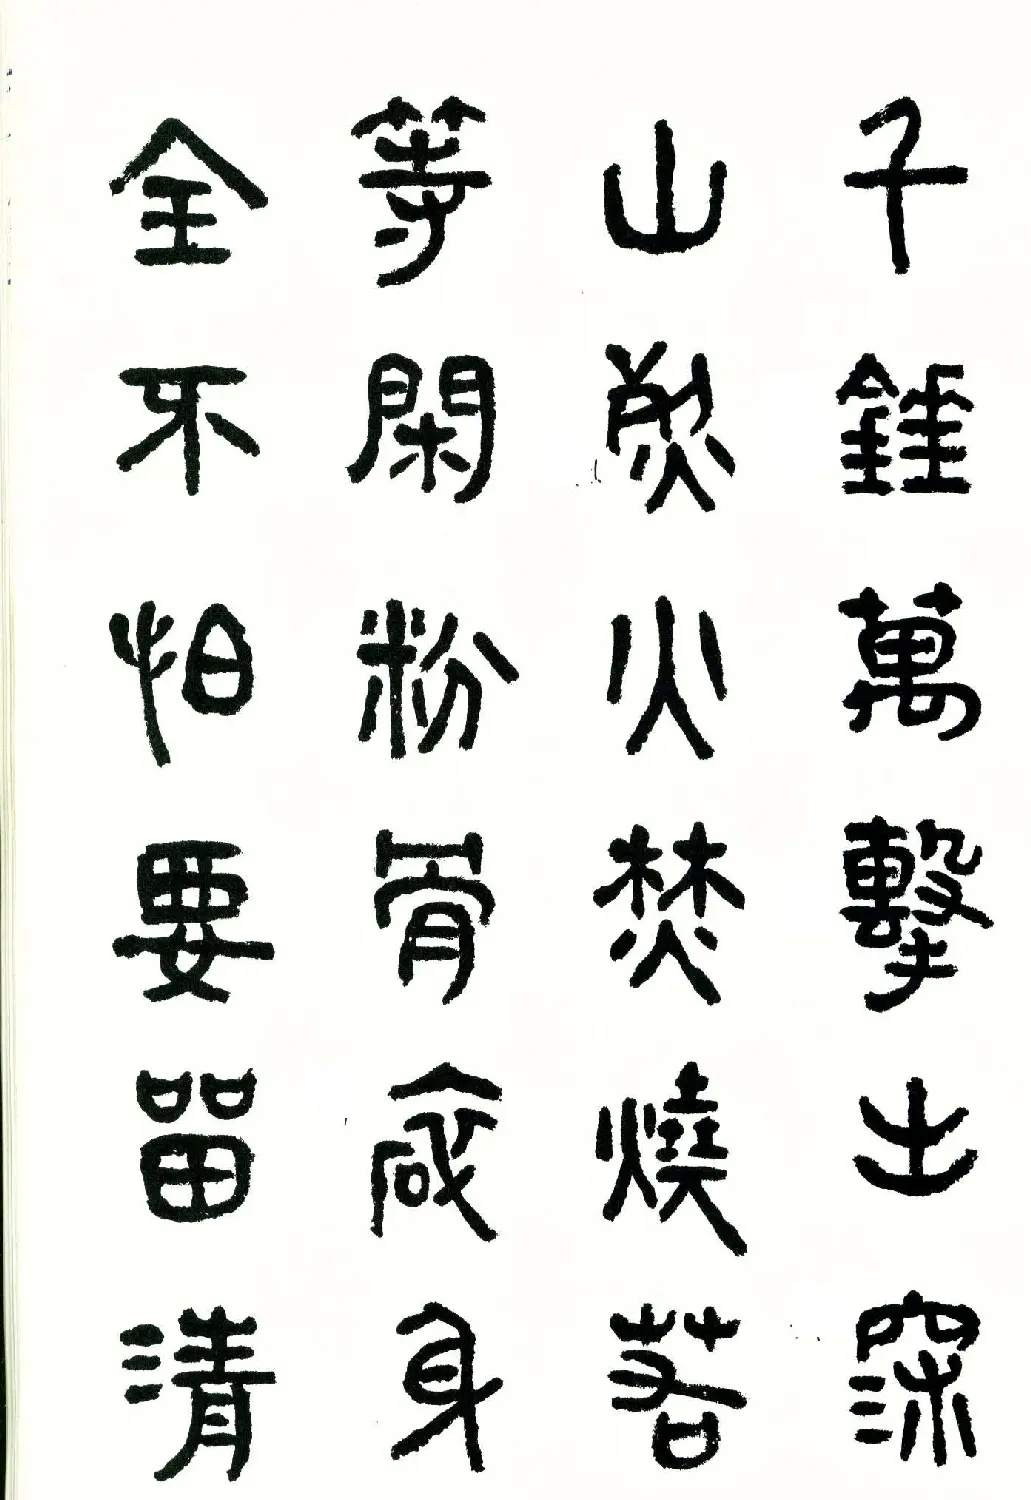 千錘萬擊出深
山烈火焚燒若
等閑粉骨碎身
全不怕要留清